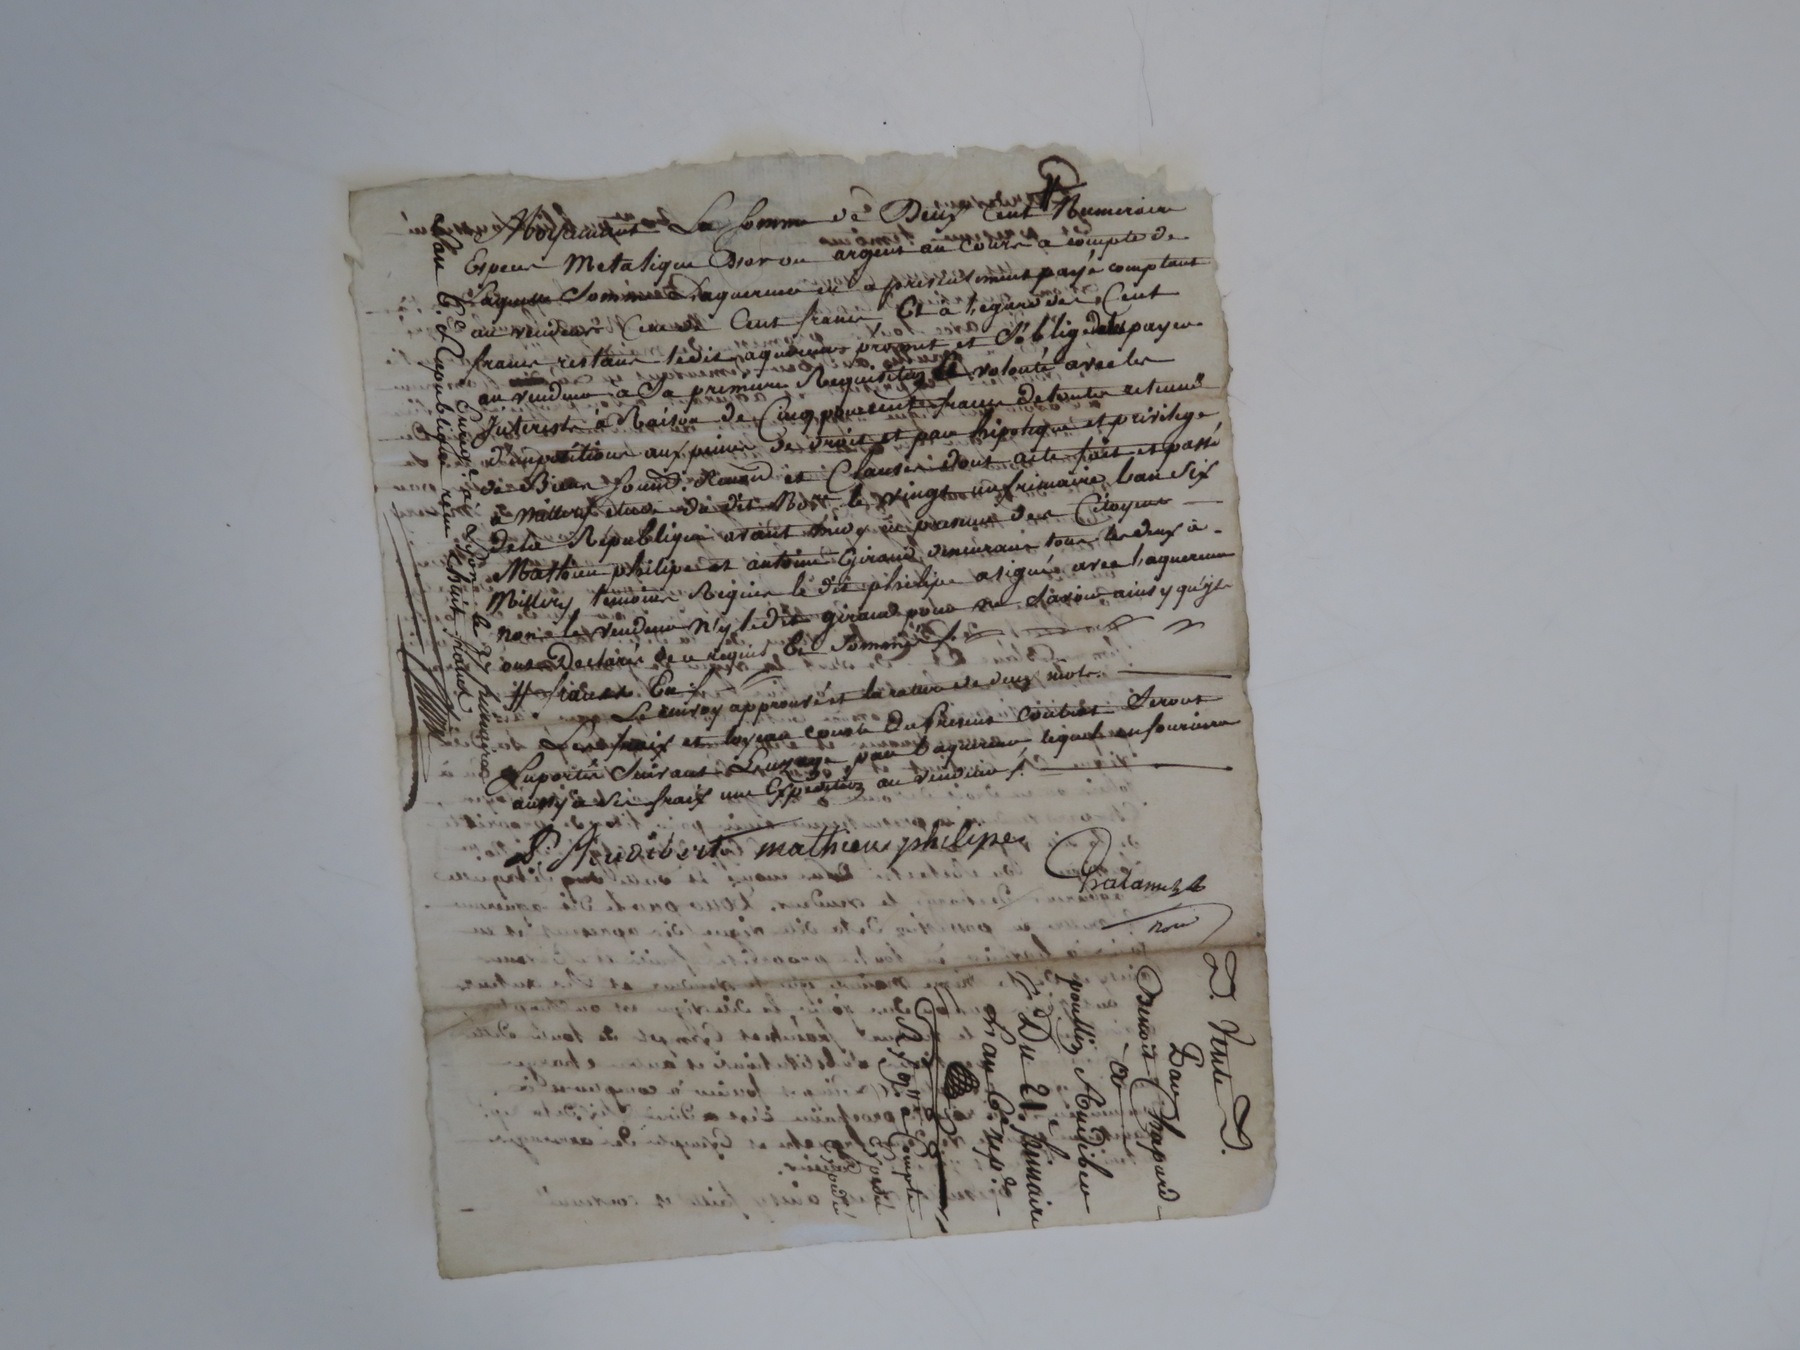 La Somme de Deux Cent # Numeraire
Espece Metalique Dor ou argent au Cours a compte de
Laquelle Somme Laquereur en a presentement payé comptant
au vendeur Celle de Cent francs Et a legard des Cent
francs restans ledit aquereur promet et S'oblige de les payer
au vendeur a Sa premiere Requisition volonté avec les
Interests á Raison de Cinq pour cent francs de toutes retenues
d'impositions aux peines de droit et par hipoteque et privilege
de Biens Soumis. Renond et Clauses dont acte fait et passé
a Millery etude du dit Not.re le vingt un frimaire lan Six
de la Republique avant midy en presence des Citoyens
Mathieu philipe et antoine Giraud demeurans tous les deux à
Millery temoins Requis le dit philipe a signé avec laquereur
non le vendeur n'y ledit giraud pour ne Savoir ainsy qu'ils
ont Declaré de ce requis et Sommé /.
# francs En
Le renvoy approuvé et la rature de deux mots.
Les fraix et loyaux couts du present Contrat Seront
Suportés Suivant Lusage par Laquereur, lequel en fournira
aussy a Ses fraix une Expedition au vendeur /.
P. Audibert mathieu philipe
not.re
Enregistré à Lyon le 27 frimaire
lan 6.e Republicain recu huit francs
D. Vente D.
Par
Benoit Chapard
a
pouttier Audiber
Du 21.e frimaire
Lan 6.e rep.e
Compte